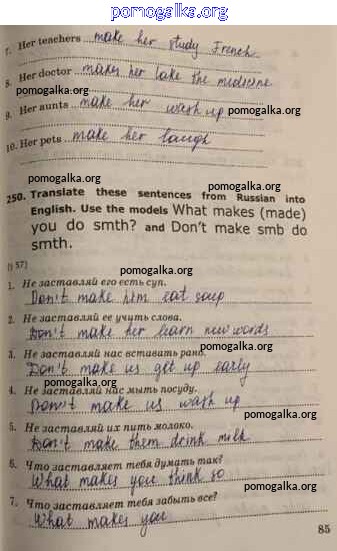 pomogalka.org
7. Her teachers make her study French
8. Her doctor makes her take the medicine
pomogalka.org
9. Her aunts make her wash up
pomogalka.org
10. Her pets make her laugh
pomogalka.org
250. Translate these sentences from Russian into
English. Use the models What makes (made)
you do smth? and Don't make smb do
smth.
(§ 57)
pomogalka.org
1. Не заставляй его есть суп.
Don't make him eat soup
2. Не заставляй ее учить слова.
Don't make her learn new words
pomogalka.org
3. Не заставляй нас вставать рано.
Don't make us get up early
pomogalka.org
4. Не заставляй нас мыть посуду.
Don't make us wash up
pomogalka.org
5. Не заставляй их пить молоко.
Don't make them drink milk
pomogalka.org
6. Что заставляет тебя думать так?
What makes you think so
pomogalka.org
7. Что заставляет тебя забыть все?
What makes you
85
pomogalka.org